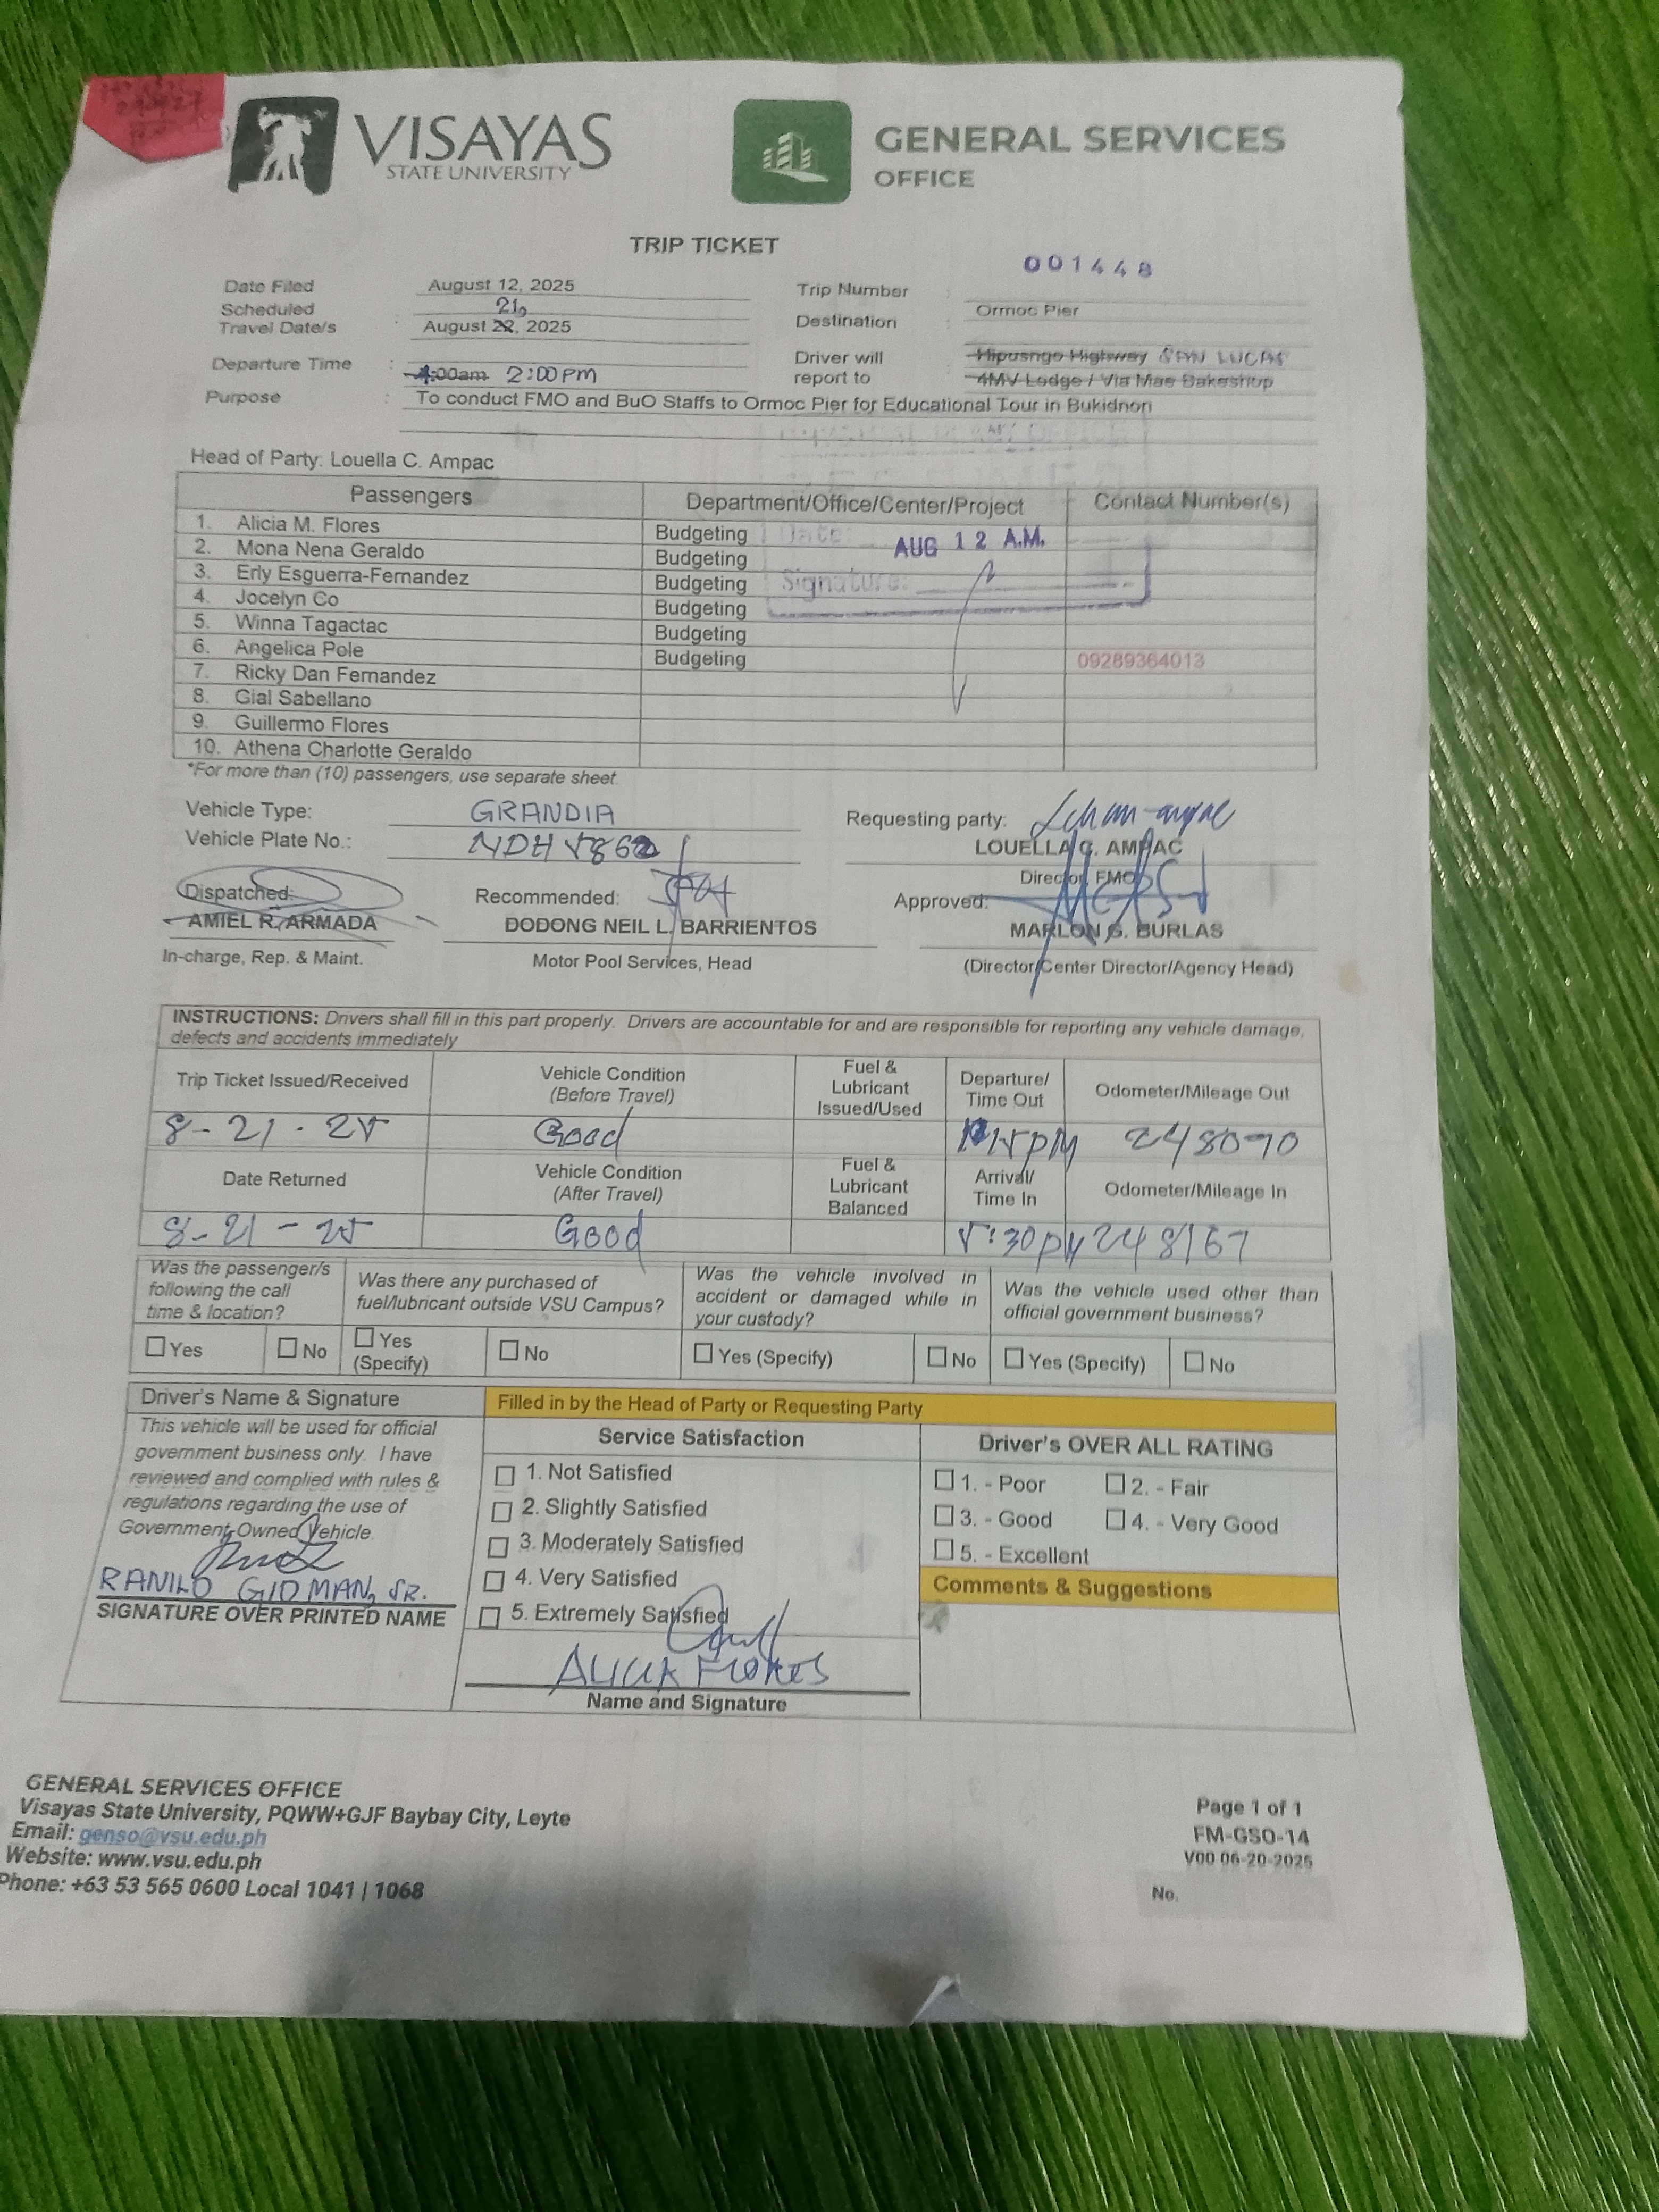 VISAYAS
STATE UNIVERSITY
GENERAL SERVICES
OFFICE
TRIP TICKET
001448
Date Filed August 12, 2025 Trip Number
Scheduled Travel Date/s : August 22, 2025 21, Destination : Ormoc Pier
Departure Time : 4:00am 2:00PM Driver will report to Hipusngo Highway SAN LUCAS
4MV Lodge / Via Mae Bakeshop
Purpose : To conduct FMO and BuO Staffs to Ormoc Pier for Educational Tour in Bukidnon
Head of Party: Louella C. Ampac
Passengers Department/Office/Center/Project Contact Number(s)
1. Alicia M. Flores Budgeting
2. Mona Nena Geraldo Budgeting
3. Erly Esguerra-Fernandez Budgeting
4. Jocelyn Co Budgeting
5. Winna Tagactac Budgeting
6. Angelica Pole Budgeting 09289364013
7. Ricky Dan Fernandez
8. Gial Sabellano
9. Guillermo Flores
10. Athena Charlotte Geraldo
Date: AUG 12 A.M.
Signature:
*For more than (10) passengers, use separate sheet.
Vehicle Type: GRANDIA Requesting party:
Vehicle Plate No.: LOUELLA C. AMPAC
Director, FMO
Dispatched: Recommended: Approved:
AMIEL R. ARMADA DODONG NEIL L. BARRIENTOS MARLON G. BURLAS
In-charge, Rep. & Maint. Motor Pool Services, Head (Director/Center Director/Agency Head)
INSTRUCTIONS: Drivers shall fill in this part properly. Drivers are accountable for and are responsible for reporting any vehicle damage,
defects and accidents immediately
Trip Ticket Issued/Received Vehicle Condition (Before Travel) Fuel & Lubricant Issued/Used Departure/ Time Out Odometer/Mileage Out
8-21-25 Good 248090
Date Returned Vehicle Condition (After Travel) Fuel & Lubricant Balanced Arrival/ Time In Odometer/Mileage In
8-21-25 Good 5:30pm 248167
Was the passenger/s following the call time & location? Was there any purchased of fuel/lubricant outside VSU Campus? Was the vehicle involved in accident or damaged while in your custody? Was the vehicle used other than official government business?
Yes No Yes (Specify) No Yes (Specify) No Yes (Specify) No
Driver's Name & Signature
This vehicle will be used for official
government business only. I have
reviewed and complied with rules &
regulations regarding the use of
Government Owned Vehicle.
RANILO GIDMAN, SR.
SIGNATURE OVER PRINTED NAME
Filled in by the Head of Party or Requesting Party
Service Satisfaction
1. Not Satisfied
2. Slightly Satisfied
3. Moderately Satisfied
4. Very Satisfied
5. Extremely Satisfied
ALICIA FLORES
Name and Signature
Driver's OVER ALL RATING
1. - Poor 2. - Fair
3. - Good 4. - Very Good
5. - Excellent
Comments & Suggestions
GENERAL SERVICES OFFICE
Visayas State University, PQWW+GJF Baybay City, Leyte
Email: genso@vsu.edu.ph
Website: www.vsu.edu.ph
Phone: +63 53 565 0600 Local 1041 | 1068
Page 1 of 1
FM-GSO-14
V00 06-20-2025
No.